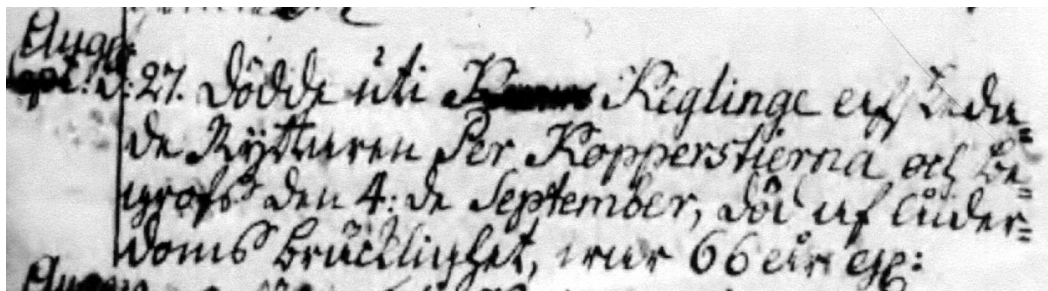 Aug:
d: 27. Dödde uti Kiglinge afskeda-
de Ryttaren Per Kopperstierna och be-
grofs den 4: de September, död af ålder-
doms bräcklighet, war 66 åhr